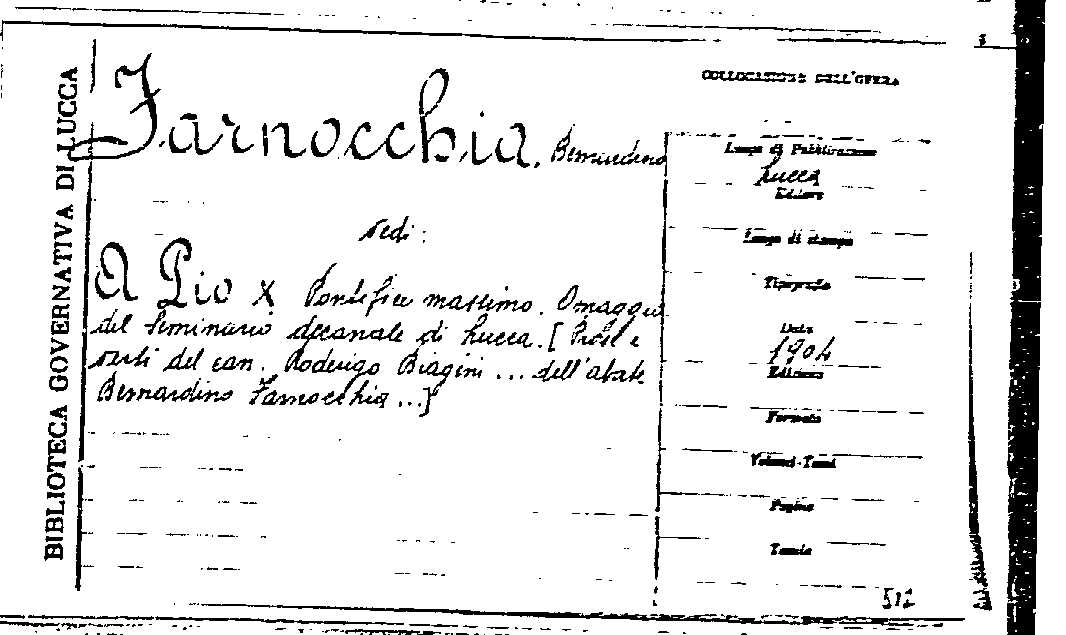 BIBLIOTECA GOVERNATIVA DI LUCCA
Farnocchia, Bernardino
vedi:
A Pio X Pontefice massimo. Omaggio
del Seminario decanale di Lucca. [Prose e
versi del can. Roderigo Biagini ... dell'abate
Bernardino Farnocchia ...]
COLLOCAZIONE DELL'OPERA
Luogo di Pubblicazione
Lucca
Editore
Luogo di stampa
Tipografo
Data
1904
Edizione
Formato
Volumi-Tomi
Pagine
Tavole
512